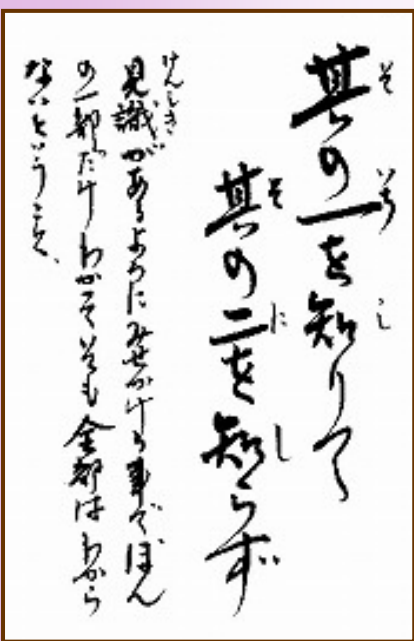 其の一を知りて
其の二を知らず
見識があるようにみせかける事でほん
の一部だけわかっていても全部はわから
ないということ、